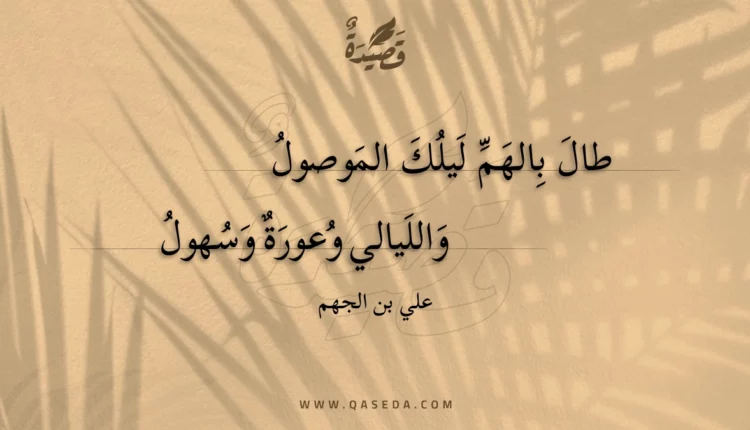 قَصِيْدَةٌ
طالَ بِالهَمِّ لَيلُكَ المَوصولُ
وَاللَيالي وُعورَةٌ وَسُهولُ
علي بن الجهم
WWW.QASEDA.COM